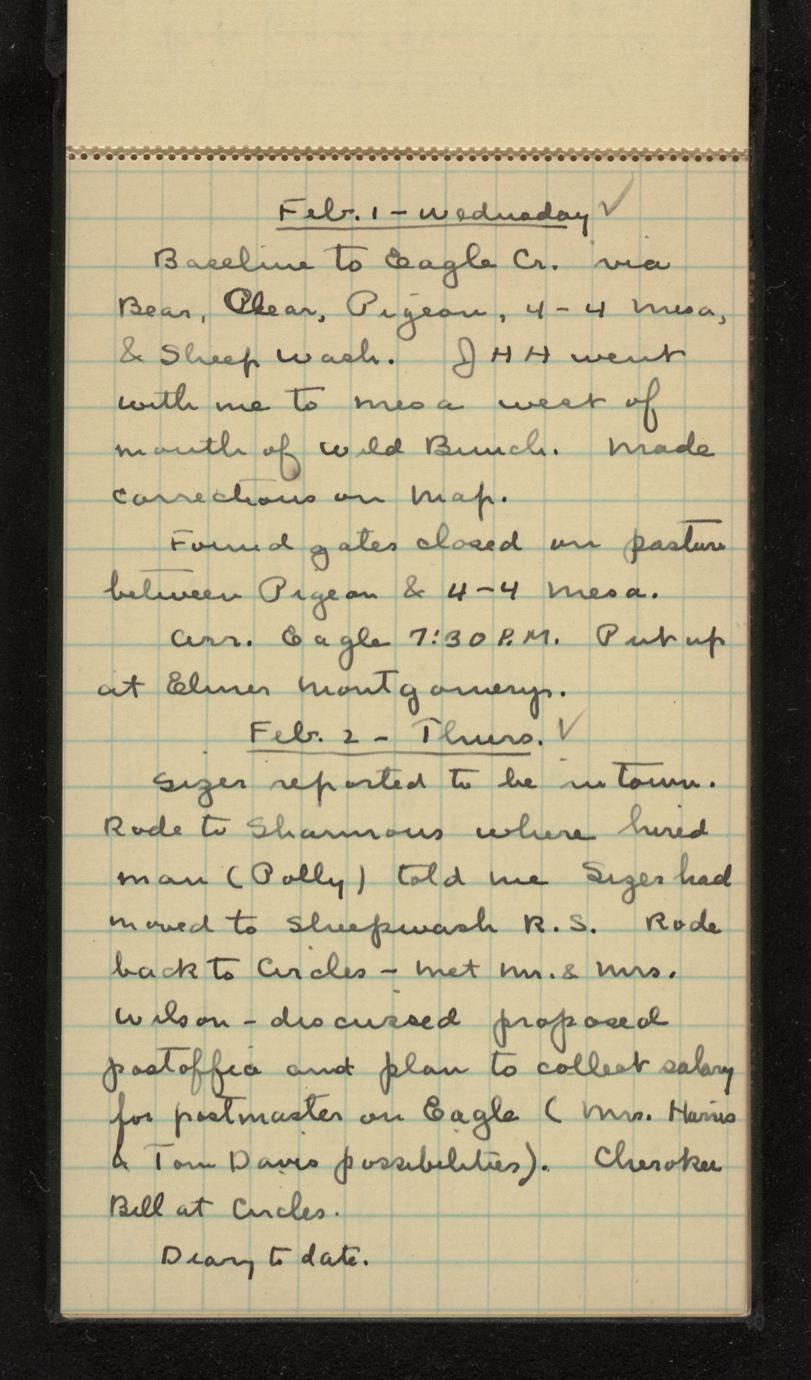 Feb. 1 - Wednesday ✓
Baseline to Eagle Cr. via
Bear, Clear, Pigeon, 4-4 Mesa,
& Sheep Wash. JHH went
with me to mesa west of
mouth of Wild Bunch. Made
corrections on map.
Found gates closed on pasture
between Pigeon & 4-4 Mesa.
Arr. Eagle 7:30 P.M. Put up
at Elmer Montgomerys.
Feb. 2 - Thurs. ✓
Sizer reported to be in town.
Rode to Sharmons where hired
man (Polly) told me Sizer had
moved to Sheepwash R.S. Rode
back to Circles - met Mr. & Mrs.
Wilson - discussed proposed
postoffice and plan to collect salary
for postmaster on Eagle (Mrs. Harris
& Tom Davis possibilities). Cherokee
Bill at Circles.
Diary to date.